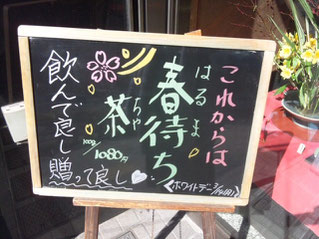 これからは
はるま
春待ち
ちゃ
茶
100g
1080円
飲んで良し
贈って良し
ホワイトデー3/14(月)